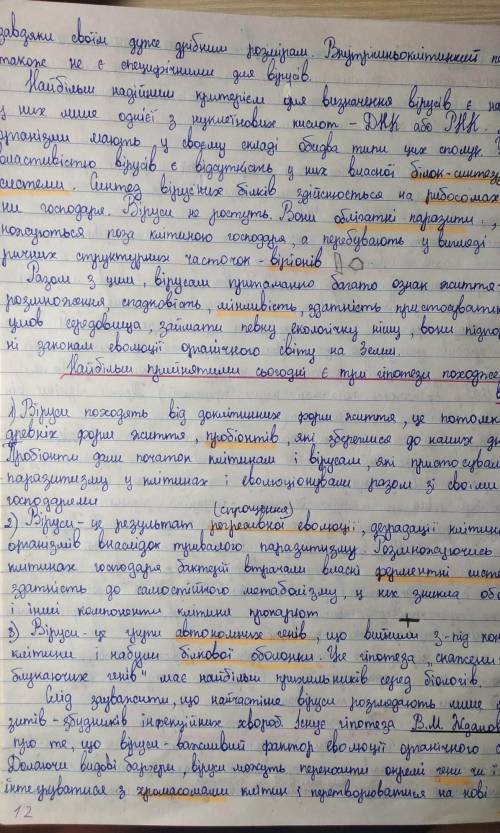 завдяки своїм дуже дрібним розмірам. Внутрішньоклітинний
також не є специфічними для вірусів.
Найбільш надійним критерієм для визначення вірусів є
у них лише однієї з нуклеїнових кислот - ДНК або РНК.
організми мають у своєму складі обидва типи цих сполук.
властивістю вірусів є відсутність у них власної білок-синтез
системи. Синтез вірусних білків здійснюється на рибосомах
ни господаря. Віруси не ростуть. Вони облігатні паразити,
ножуються поза клітиною господаря, а перебувають у вигляді
ричних структурних часточок - віріонів
Разом з цим, вірусам притаманно багато ознак життя -
розмноження, спадковість, мінливість, здатність пристосувати
умов середовища, займати певну екологічну нішу, вони підпор
ні законам еволюції органічного світу на Землі.
Найбільш прийнятими сьогодні є три гіпотези походже
в
1) Віруси походять від доклітинних форм життя, це потомк
древніх форм життя, пробіонтів, які збереглися до наших дн
Пробіонти дали початок клітинам і вірусам, які пристосувал
паразитизму у клітинах і еволюціонували разом зі своїми
господарями
(спрощення)
2) Віруси - це результат регресивної еволюції, деградації клітин
організмів внаслідок тривалого паразитизму. Розмножуючись
клітинах господаря бактерії втрачали власні ферментні систе
здатність до самостійного метаболізму, у них зникла обо
і інші компоненти клітини прокаріот
3) Віруси - це групи автономних генів, що вийшли з-під кон
клітини і набули білкової оболонки. Ця гіпотеза „скажених
блукаючих генів" має найбільш прихильників серед біологів.
Слід зауважити, що найчастіше віруси розглядають лише
зитів - збудників інфекційних хвороб. Існує гіпотеза В.М Жданов
про те, що віруси - важливий фактор еволюції органічного с
Долаючи видові бар'єри, віруси можуть переносити окремі гени чи ї
інтегруватися з хромосомами клітин і перетворюватися на нові
12